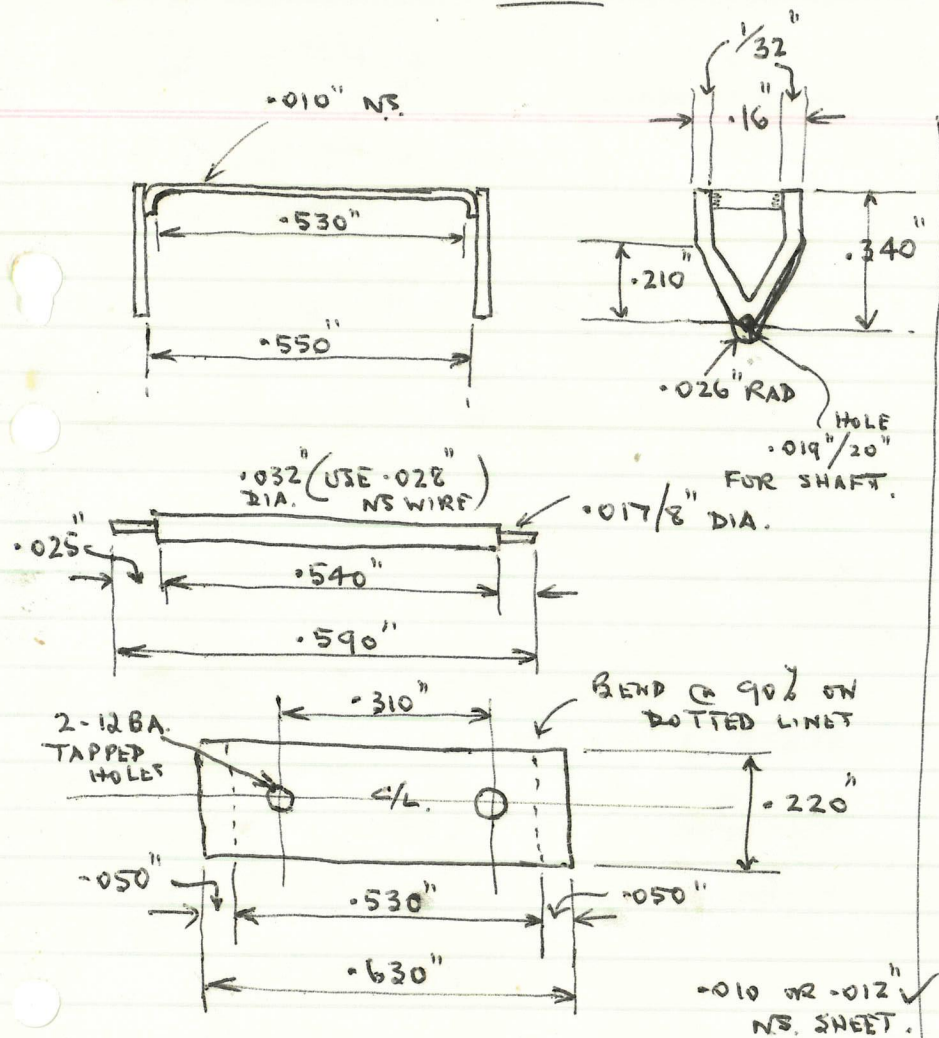 1/32"
.010" NS.
.16"
.530"
.340"
.210"
.550"
.026" RAD
HOLE
.019"/20"
FOR SHAFT.
.032" (USE .028"
DIA. NS WIRE)
.017/8" DIA.
.025"
.540"
.590"
.310"
BEND @ 90° ON
DOTTED LINES
2-12BA.
TAPPED
HOLES
C/L.
.220"
.050"
.530"
.050"
.630"
.010 OR .012"
NS. SHEET.